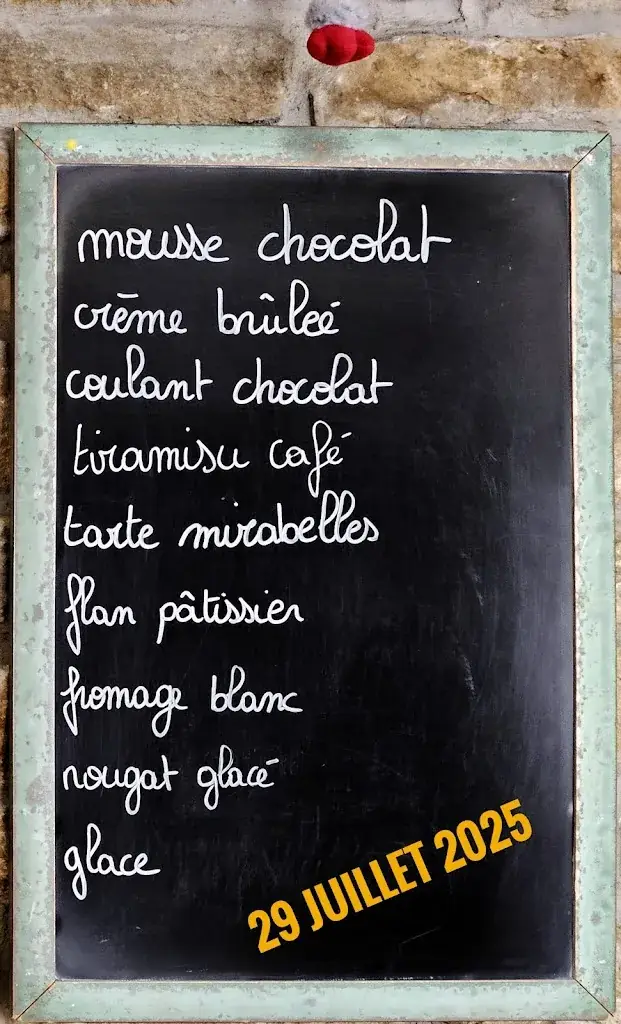 mousse chocolat
crème brûleé
coulant chocolat
tiramisu café
tarte mirabelles
flan pâtissier
fromage blanc
nougat glacé
glace
29 JUILLET 2025